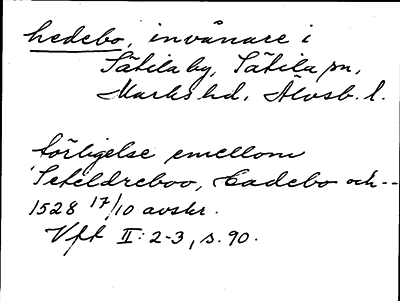 hedebo, invånare i
Sätila by, Sätila sn,
Marks hd, Älvsb. l.
törligelse emellom
Seteldreboo, Hadebo och --
1528 17/10 avskr.
Vft II: 2-3, s. 90.